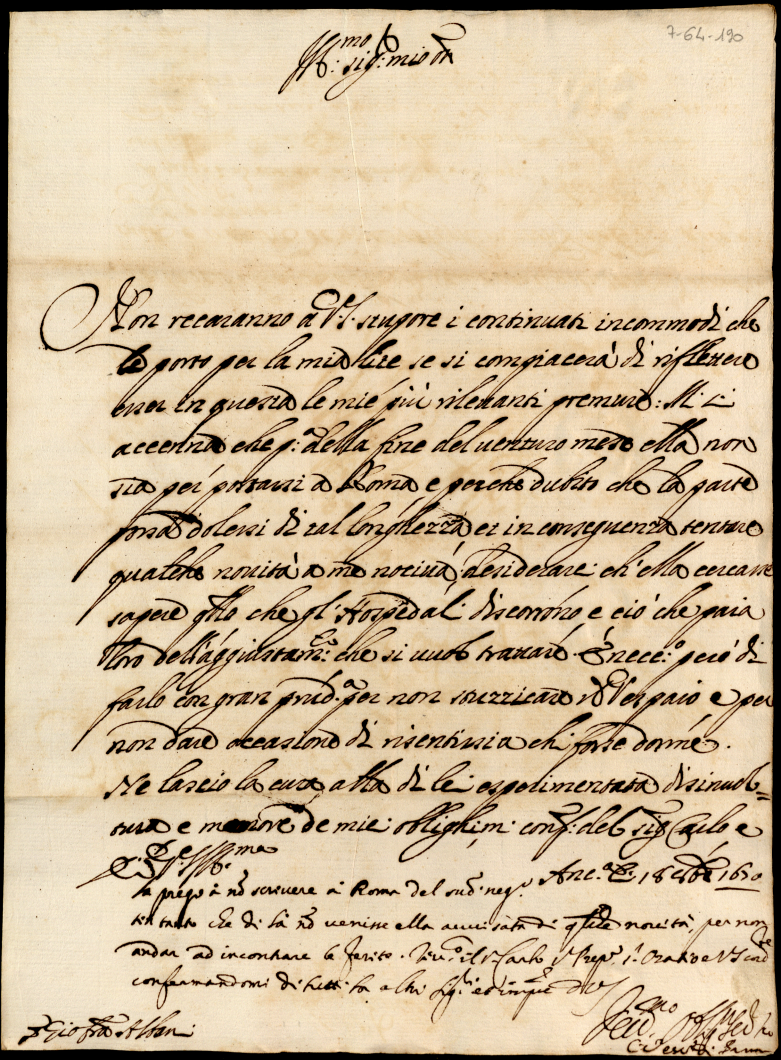 7-64-190
Ill.mo sig.r mio
Non recaranno a V.S. stupore i continuati incommodi che
le porto per la mia lite se si compiacerà di riflettere
esser in questa le mie più rilevanti premure: M
accenna che p.a della fine del venturo mese ella non
sia per portarsi a Roma e perche dubito che la parte
possa dolersi di tal longhezza et in conseguenza tentare
qualche novità a me nociva, desiderare ch'ella cercasse
sapere qllo che gl' Hospedal discorrono e ciò che paia
loro dell'aggiustam.to che si vuol trattare. È nece.o però di
farlo con gran prud.a per non stuzzicare il Vespaio e per
non dare occasione di risentirsi a chi forse dorme.
Ne lascio la cura alla di lei esperimentata disinvol=
tura e memore de miei oblighi conf. del sig Carlo e
V.S. Ill.ma
Anc.a 18 1670
la prego à nõ scrivere à Roma del sud. neg.o
tintanto che di là nõ venisse ella avvisata di qlche novità, per non
andar ad incontrare le ferite. il Carlo Oratio e
confermandomi di tutti
Gio fra Alban